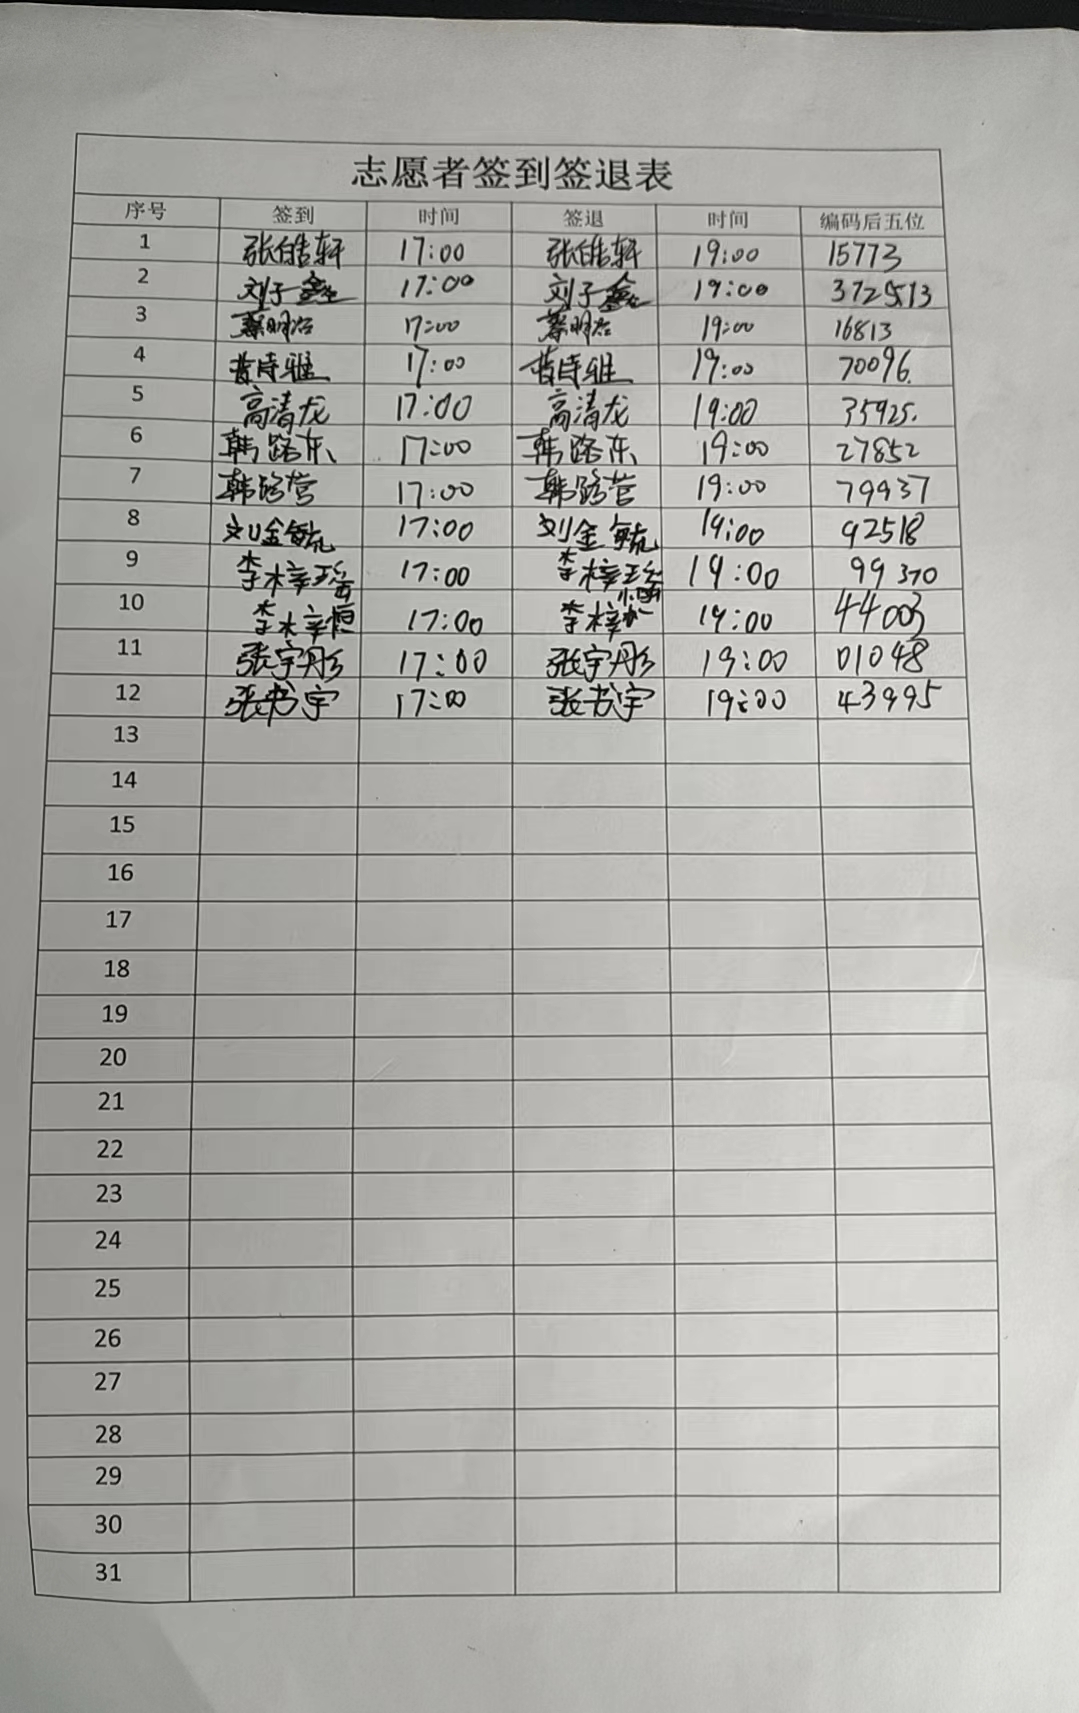 志愿者签到签退表
序号 签到 时间 签退 时间 编码后五位
1 张皓轩 17:00 张皓轩 19:00 15773
2 刘子鑫 17:00 刘子鑫 19:00 372513
3 蔡明治 17:00 蔡明治 19:00 16813
4 昔诗雅 17:00 昔诗雅 19:00 70096.
5 高清龙 17:00 高清龙 19:00 35925.
6 韩路东 17:00 韩路东 19:00 27852
7 韩路营 17:00 韩路营 19:00 79937
8 刘金毓 17:00 刘金毓 19:00 92518
9 李梓瑶 17:00 李梓瑶 19:00 99370
10 李梓恒 17:00 李梓恒 19:00 44003
11 张宇彤 17:00 张宇彤 19:00 01048
12 张书宇 17:00 张书宇 19:00 43995
13
14
15
16
17
18
19
20
21
22
23
24
25
26
27
28
29
30
31